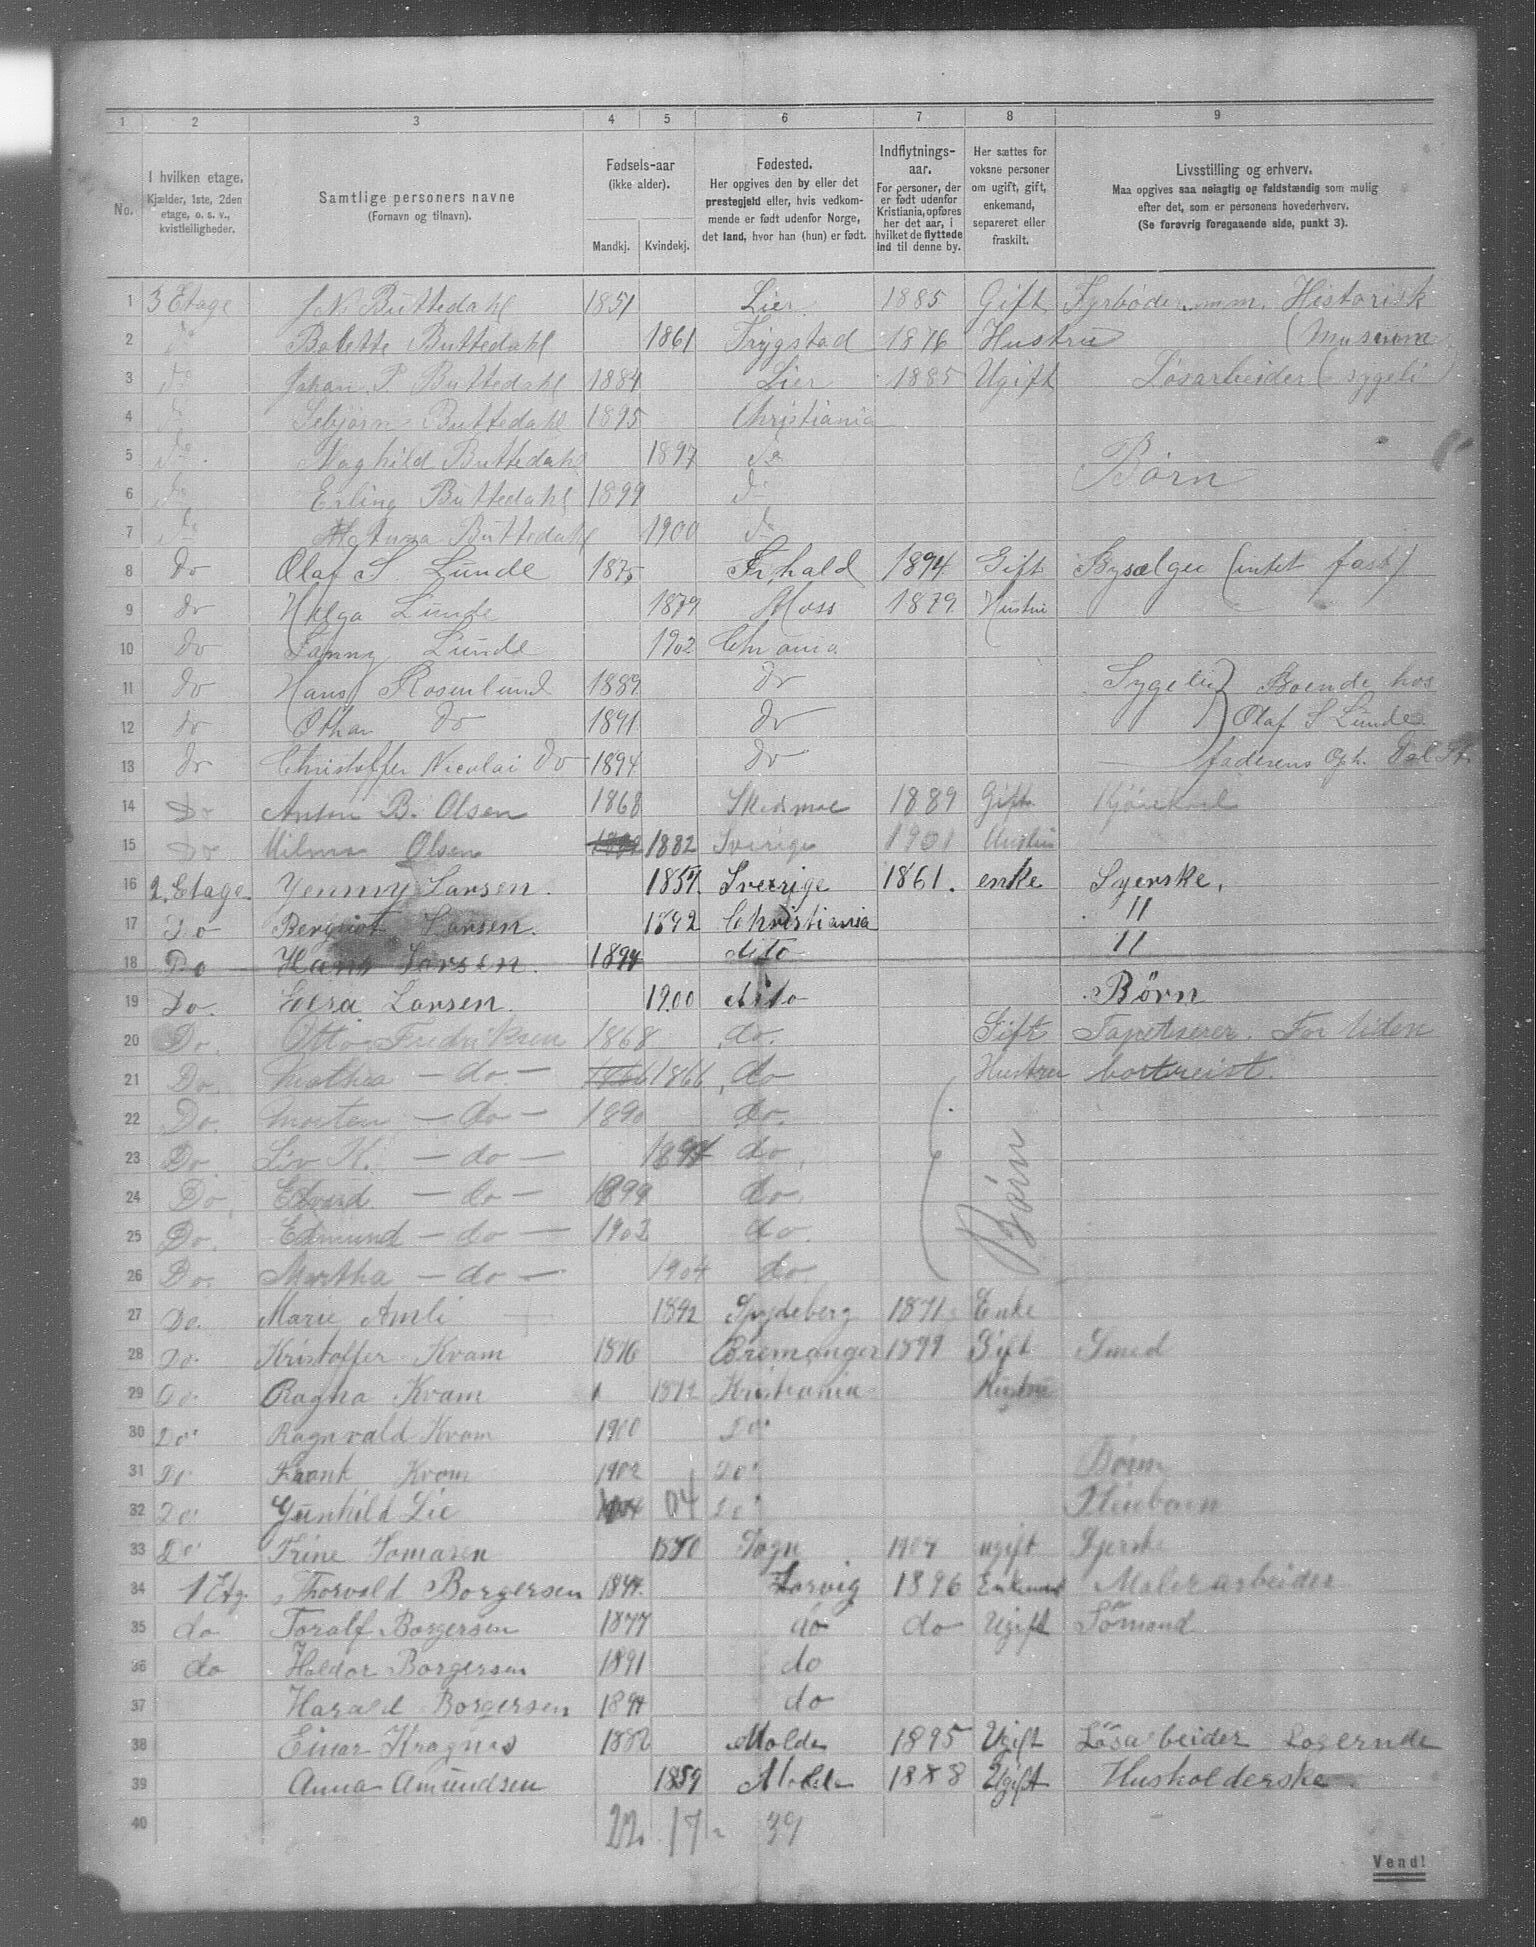 1 2 3 4 5 6 7 8 9
No.
I hvilken etage.
Kjælder, 1ste, 2den
etage, o. s. v.,
kvistleiligheder.
Samtlige personers navne
(Fornavn og tilnavn).
Fødsels-aar
(ikke alder).
Mandkj. Kvindekj.
Fødested.
Her opgives den by eller det
prestegjeld eller, hvis vedkom-
mende er født udenfor Norge,
det land, hvor han (hun) er født.
Indflytnings-
aar.
For personer, der
er født udenfor
Kristiania, opføres
her det aar, i
hvilket de flyttede
ind til denne by.
Her sættes for
voksne personer
om ugift, gift,
enkemand,
separeret eller
fraskilt.
Livsstilling og erhverv.
Maa opgives saa nøiagtig og fuldstændig som mulig
efter det, som er personens hovederhverv.
(Se forøvrig foregaaende side, punkt 3).
1 3 Etage J. N. Buttedahl 1851 Lier 1885 Gift Fyrbøder m.m. Historisk
2 do Bolette Buttedahl 1861 Trygstad 1876 Hustru (Museum
3 do Johan P Buttedahl 1884 Lier 1885 Ugift Løsarbeider (sygeli
4 do Buttedahl 1895 Christiania
5 do Buttedahl 1897 do Børn
6 do Erling Buttedahl 1899 do
7 do Buttedahl 1900 do
8 do Olaf S Lunde 1875 Fr,hald 1894 Gift Bysælger (intet fast)
9 do Helga Lunde 1879 Moss 1879 Hustru
10 do Fanny Lunde 1902 Chr ania
11 do Hans Rosenlund 1889 do Boende hos
12 do Othar do 1891 do Olaf S Lunde
13 do Christoffer Nicolai do 1894 do faderens Oph.
14 Do Anton B. Olsen 1868 Skedsmoe 1889 Gift Kjørekarl
15 Do Milma Olsen 1882 Sverige 1901 Hustru
16 2. Etage Yenny Larsen. Sverige 1861. enke Syerske,
17 Do Larsen. 1892 Christiania "
18 Do Hans Larsen. 1894 dito "
19 Do. Elsa Larsen. 1900 dito Børn
20 Do. Otto Fredriksen 1868 do. Gift Tapetserer. For tiden
21 Do. Mathea — do — 1866 do Hustru bortreist.
22 Do. Morten — do — 1890 do. Børn
23 Do. Liv K. — do — do.
24 Do. Edvard — do — 1899 do.
25 Do. Edmund — do — 1903 do.
26 Do. Martha — do — 1904 do.
27 Do. Marie Amli Spydeberg 1871 Enke
28 Do. Kristoffer Kvam 1876 Bremanger 1899 Gift Smed
29 Do. Ragna Kvam 1872 Kristiania Hustru
30 Do. Ragnvald Kvam 1900 Do.
31 Do Frank Kvam 1902 Do. Børn
32 Do. Gunhild Lie 04 Do. Pleiebarn
33 Do. Trine Tomasen Sogn 1904 ugift Syerske
34 1 Etg. Thorvald Borgersen Larvig 1896 Enkemand Malerarbeider
35 do Toralf Borgersen 1877 do do Ugift Sömand
36 do Haldor Borgersen 1891 do
37 Harald Borgersen 1894 do
38 Einar Kragnes 1882 Molde 1895 Ugift Løsarbeider Logernde
39 Anna Amundsen 1859 Molde 1888 Ugift Husholderske
40 22. 17 39
Vend!